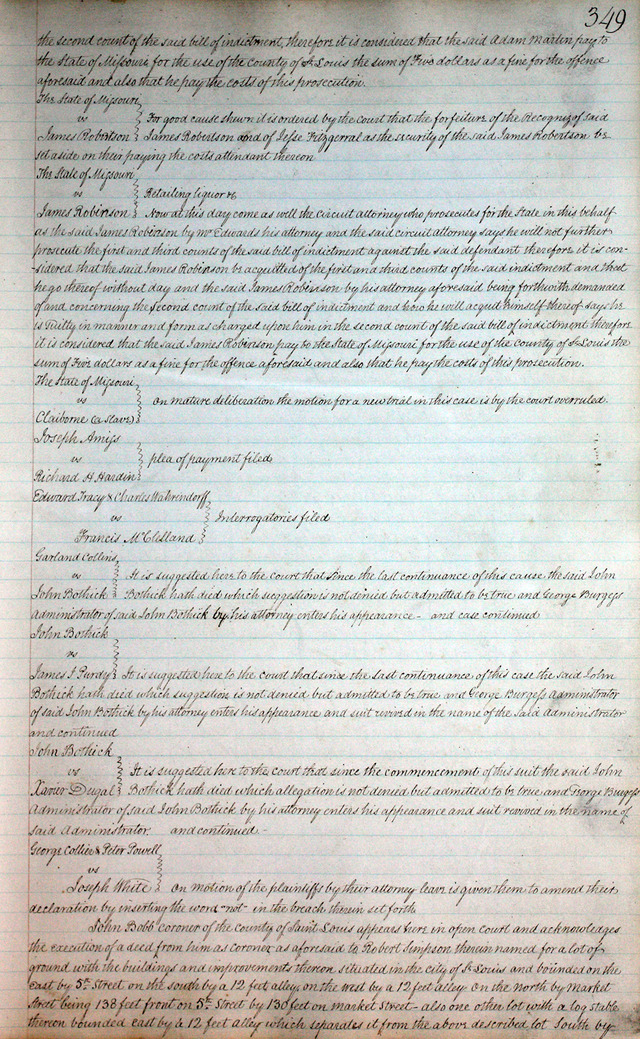 349
the second count of the said bill of indictment, therefore it is considered that the said Adam Martin pay to
the State of Missouri for the use of the county of St Louis the sum of Five dollars as a fine for the offence
aforesaid and also that he pay the costs of this prosecution.
The State of Missouri
vs } For good cause shewn it is ordered by the court that the forfeiture of the Recogniz of said
James Robertson } James Robertson and of Jesse Fitzgerral as the security of the said James Robertson be
set aside on their paying the costs attendant thereon
The State of Missouri
vs } Retailing liquor &c
James Robinson } Now at this day come as well the circuit attorney who prosecutes for the State in this behalf
as the said James Robinson by Mr Edwards his attorney and the said circuit attorney says he will not further
prosecute the first and third counts of the said bill of indictment against the said defendant therefore it is con-
-sidered that the said James Robinson be acquitted of the first and third counts of the said indictment and that
he go thereof without day and the said James Robinson by his attorney aforesaid being forthwith demanded
of and concerning the second count of the said bill of indictment and how he will acquit himself thereof says he
is Guilty in manner and form as charged upon him in the second count of the said bill of indictment therefore
it is considered that the said James Robinson pay to the State of Missouri for the use of the county of St Louis the
sum of Five dollars as a fine for the offence aforesaid and also that he pay the costs of this prosecution.
The State of Missouri
vs } On mature deliberation the motion for a new trial in this case is by the court overruled.
Claiborne (a slave)
Joseph Amiss
vs } plea of payment filed
Richard H Hardin
Edward Tracy & Charles Wahrindorff
vs } Interrogatories filed
Francis McClelland
Garland Collins
vs } It is suggested here to the court that since the last continuance of this cause the said John
John Bothick } Bothick hath died which suggestion is not denied but admitted to be true and George Burgess
Administrator of said John Bothick by his attorney enters his appearance - and case continued
John Bothick
vs
James S Purdy } It is suggested here to the court that since the last continuance of this case the said John
Bothick hath died which suggestion is not denied but admitted to be true and George Burgess Administrator
of said John Bothick by his attorney enters his appearance and suit revived in the name of the said Administrator
and continued
John Bothick
vs } It is suggested here to the court that since the commencement of this suit the said John
Xavier Dugal } Bothick hath died which allegation is not denied but admitted to be true and George Burgess
Administrator of said John Bothick by his attorney enters his appearance and suit revived in the name of
said Administrator and continued -
George Collier & Peter Powell
vs
Joseph White } On motion of the plaintiffs by their attorney leave is given them to amend their
declaration by inserting the word "not" in the breach therein set forth
John Bobb coroner of the county of Saint Louis appears here in open court and acknowledges
the execution of a deed from him as coroner as aforesaid to Robert Simpson therein named for a lot of
ground with the buildings and improvements thereon situated in the city of St Louis and bounded on the
East by 5th Street on the south by a 12 feet alley, on the west by a 12 feet alley on the north by Market
Street being 138 feet front on 5th Street by 130 feet on market Street - also one other lot with a log stable
thereon bounded east by a 12 feet alley which separates it from the above described lot South by